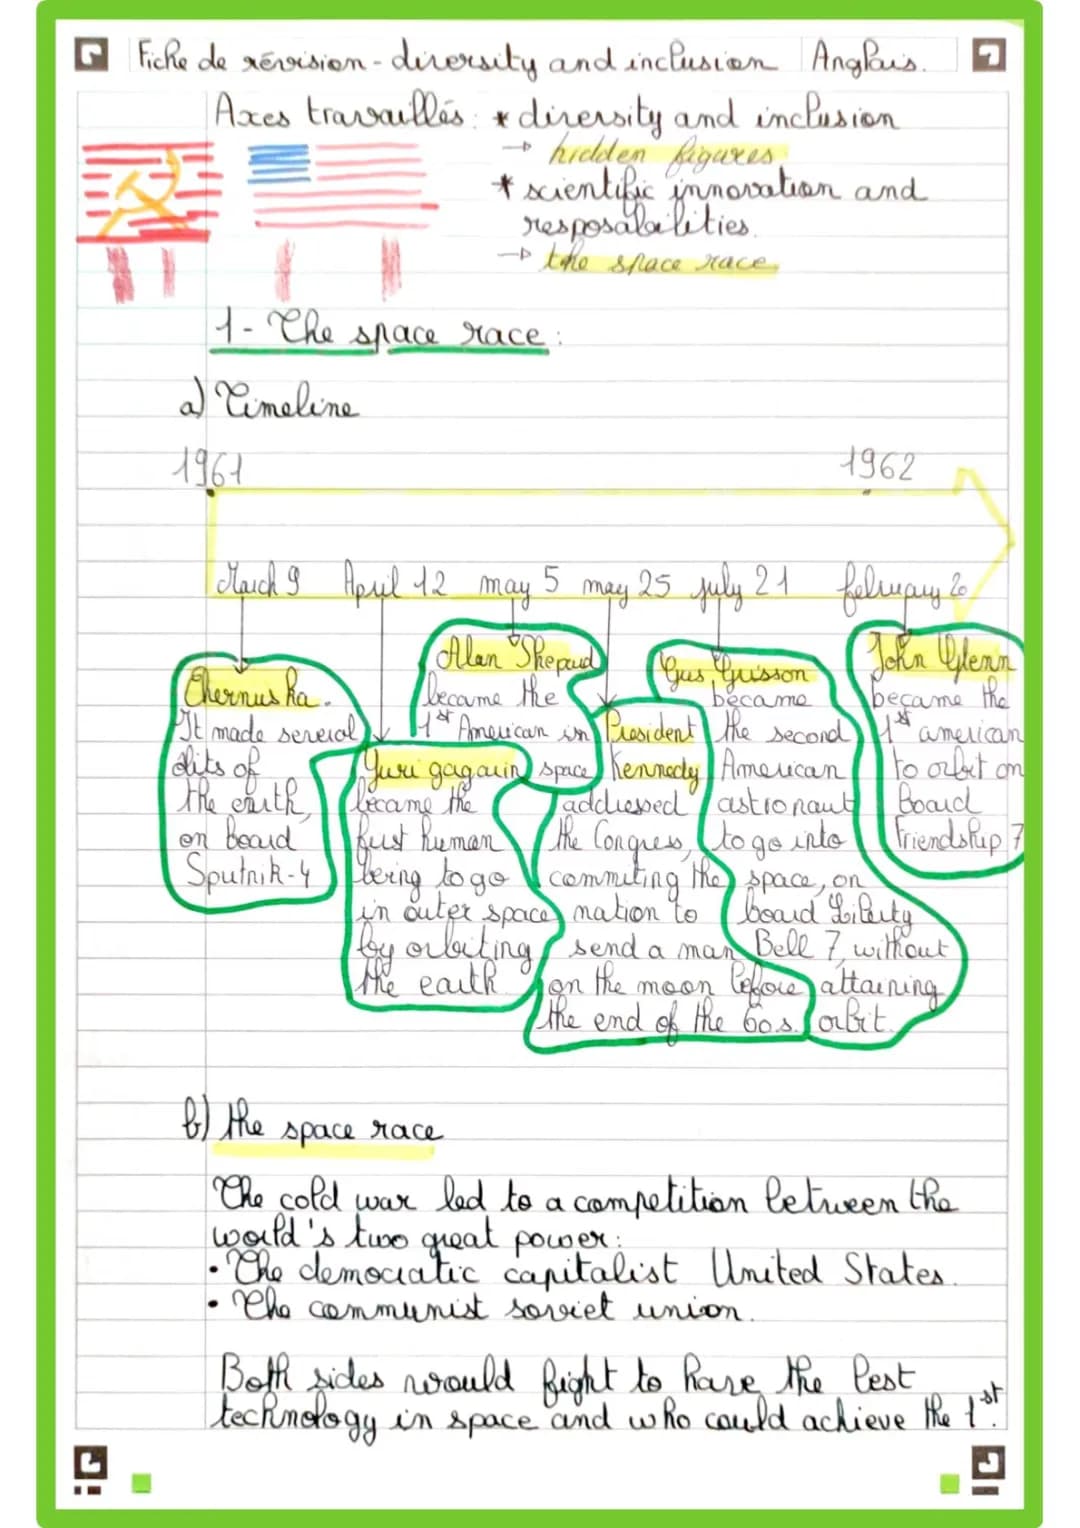 Fiche de révision - diversity and inclusion Anglais.
Axes travaillés: * diversity and inclusion
→ hidden figures
* scientific innovation and
resposabilities.
→ the space race
1- The space race:
a) Timeline
1961 1962
March 9 April 12 may 5 may 25 july 21 february 20
Chernuska.
It made several
obits of
the earth,
on board
Sputnik-4
Yuri gagarin
became the
first human
being to go
in outer space
by orbiting
the earth.
Alan Shepard
became the
1st American in
space
President
Kennedy
addressed
the Congress,
commiting the
nation to
send a man
on the moon before
the end of the 60s.
Gus Grisson
became
the second
American
astronaut
to go into
space, on
board Liberty
Bell 7, without
attaining
orbit.
John Glenn
became the
1st american
to orbit on
board
Friendship 7
b) the space race
The cold war led to a competition between the
world's two great power:
• The democratic capitalist United States.
• The communist soviet union.
Both sides would fight to have the best
technology in space and who could achieve the 1st.